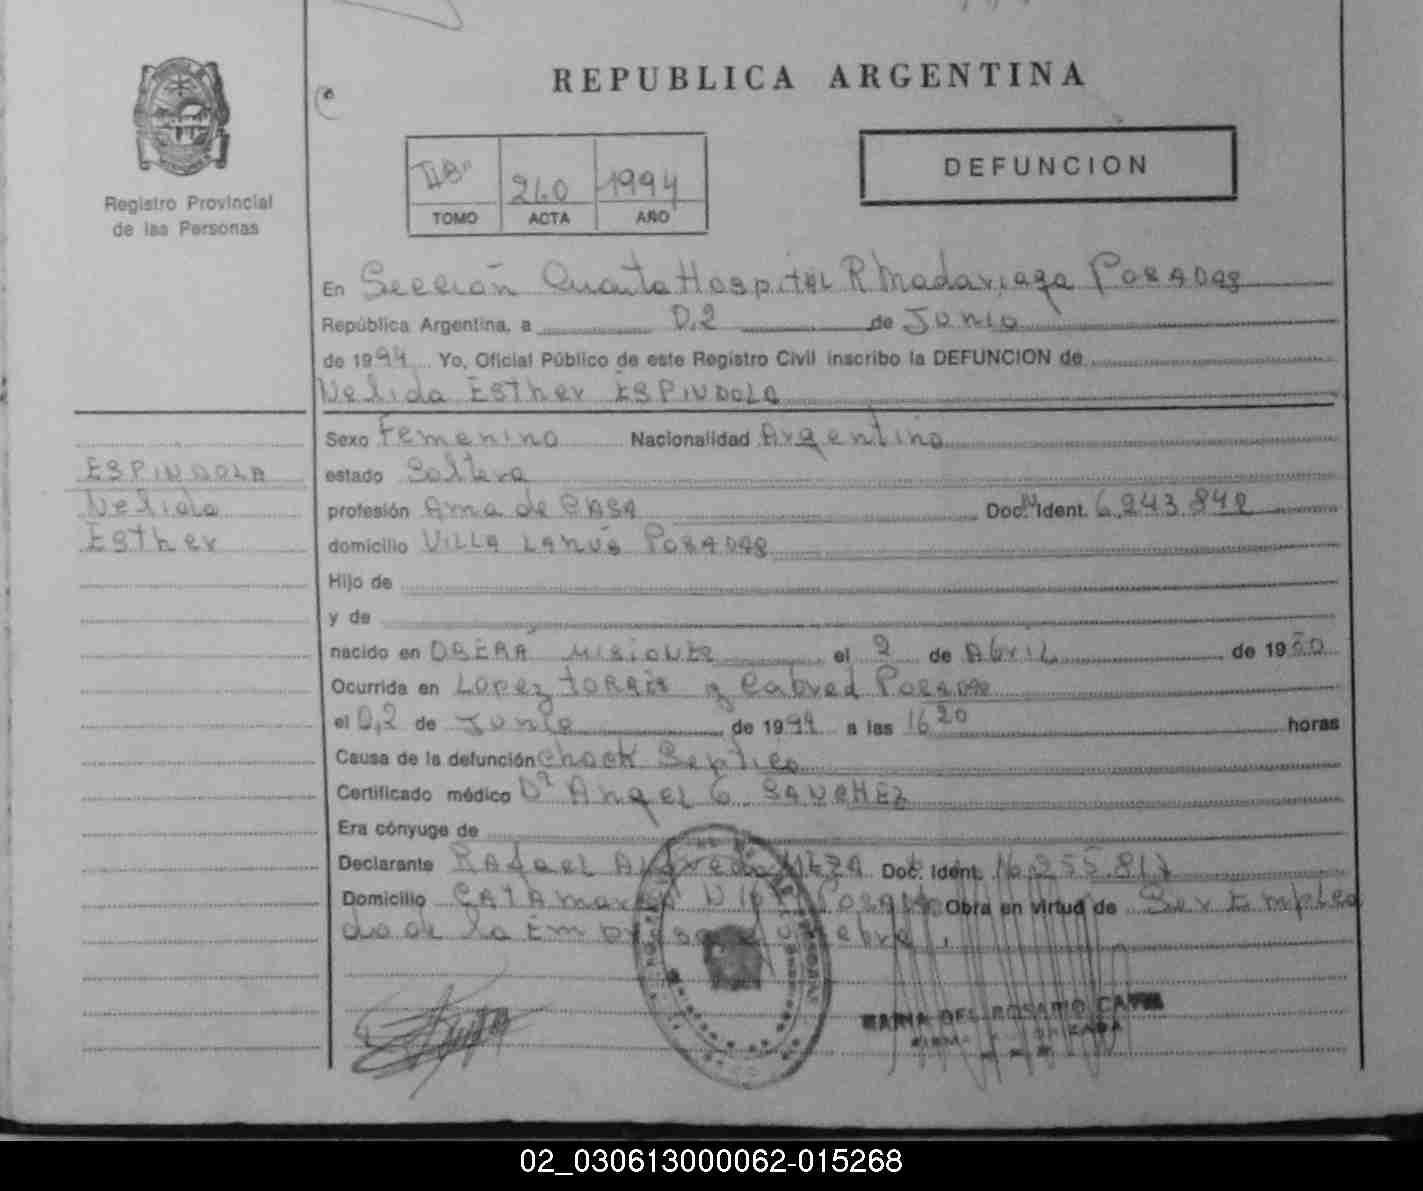 REPUBLICA ARGENTINA
Registro Provincial
de las Personas
260 1994
TOMO ACTA AÑO
DEFUNCION
En Sección Cuarta Hospital R Madariaga POSADAS
República Argentina, a 02 de Junio
de 1994 Yo, Oficial Público de este Registro Civil inscribo la DEFUNCION de
Nelida Esther ESPINDOLA
Sexo Femenino Nacionalidad Argentina
ESPINDOLA
Nelida
Esther
estado Soltera
profesión Ama de CASA Doc. Ident. 6.243.842
domicilio VILLA LANÚS POSADAS
Hijo de
y de
nacido en OBERÁ MISIONES el 2 de Abril de 1950
Ocurrida en LOPEZ TORRES y Cabred POSADAS
el 02 de Junio de 1994 a las 16 20 horas
Causa de la defunción Chock Septico
Certificado médico Dr Angel G. SANCHEZ
Era cónyuge de
Declarante Rafael Alfredo MEZA Doc. Ident. 16.255.817
Domicilio CATAmarca Posadas Obra en virtud de Ser Emplea
do de la Empresa Funebre.
DEL ROSARIO
02_030613000062-015268